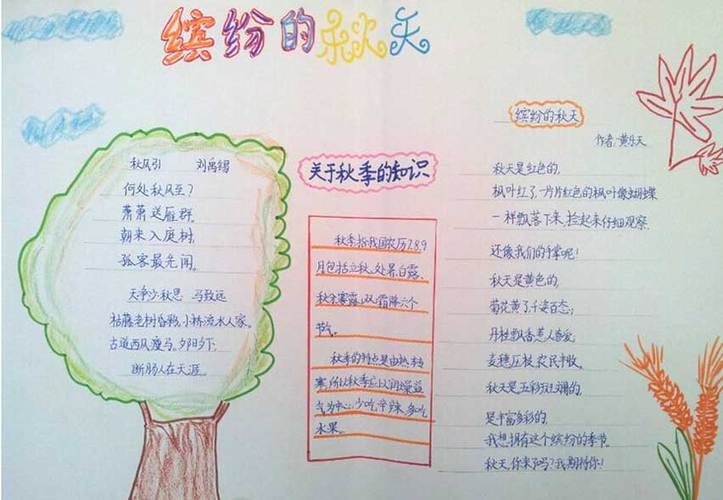 缤纷的秋天
秋风引 刘禹锡
何处秋风至？
萧萧送雁群。
朝来入庭树，
孤客最先闻。
天净沙·秋思 马致远
枯藤老树昏鸦，小桥流水人家。
古道西风瘦马。夕阳西下，
断肠人在天涯。
关于秋季的知识
秋季指我国农历7.8.9
月包括立秋、处暑、白露、
秋分、寒露、霜降六个
节气。
秋季的特点是由热转
寒，所以秋季应以润燥益
气为中心，少吃辛辣，多吃
水果。
缤纷的秋天
作者：黄乐天
秋天是红色的，
枫叶红了，一片片红色的枫叶像蝴蝶
一样飘落下来，捡起来仔细观察，
还像我们的手掌呢！
秋天是黄色的，
菊花黄了，千姿百态；
丹桂飘香惹人喜爱；
麦穗压枝，农民丰收。
秋天是五彩斑斓的，
是丰富多彩的。
我想拥有这个缤纷的季节。
秋天，你来了吗？我期待你！